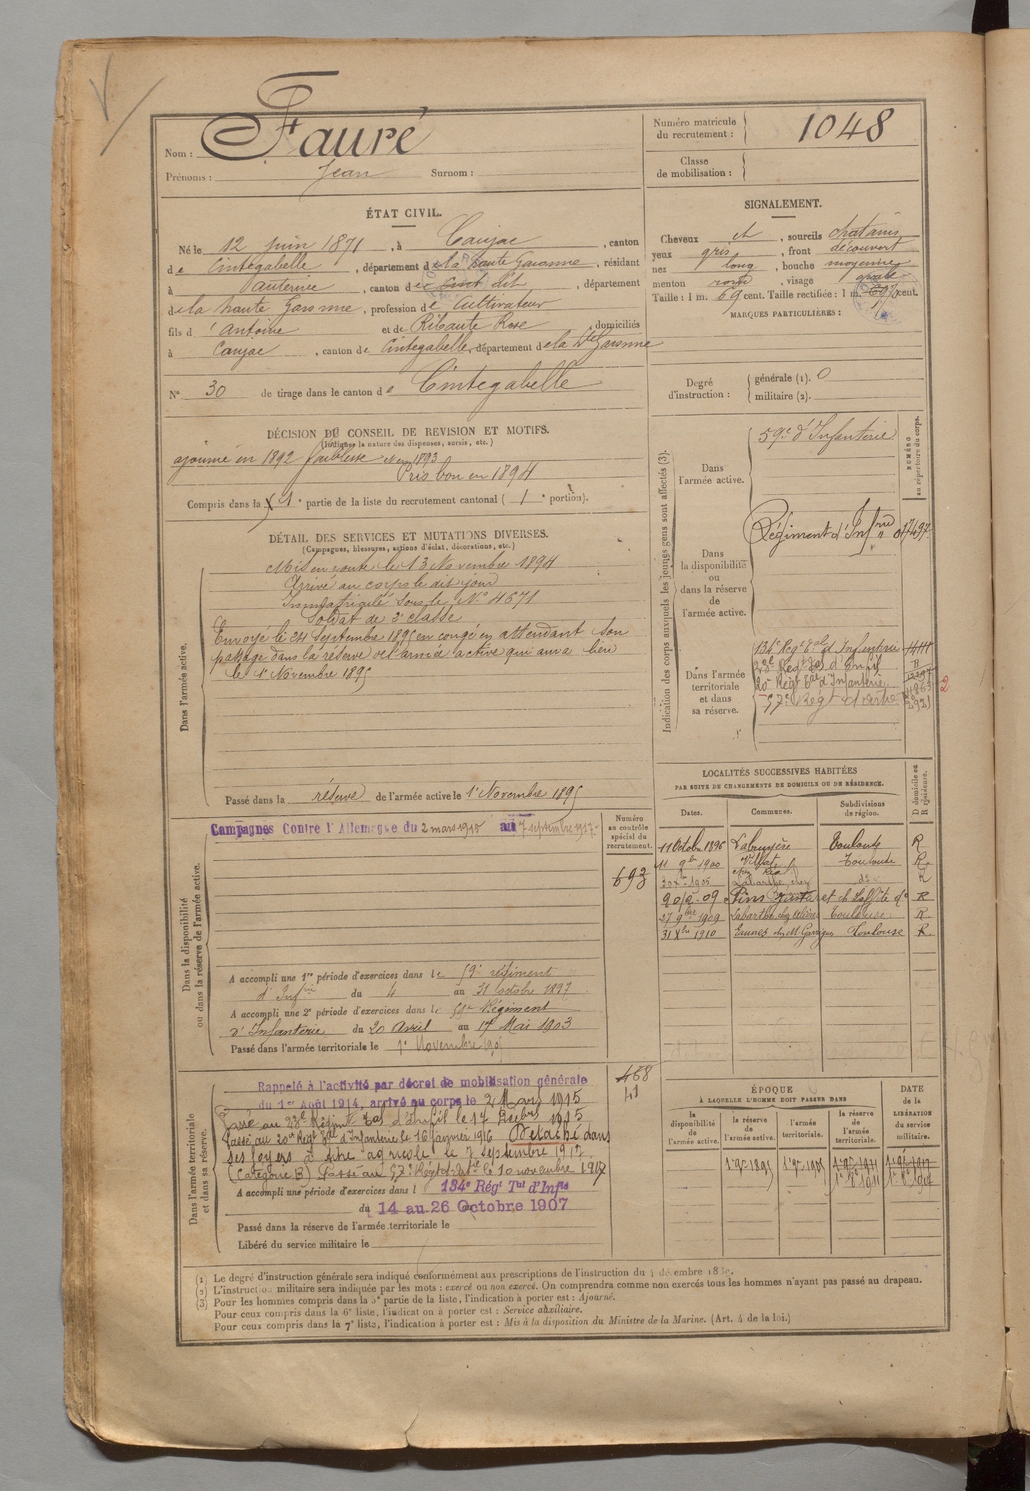 Nom : Fauré
Prénoms : Jean Surnom :
Numéro matricule du recrutement : 1048
Classe de mobilisation :
ÉTAT CIVIL.
Né le 12 juin 1871, à Caujac, canton
de Cintegabelle, département de la haute Garonne, résidant
à Vauternie, canton de dit, département
de la haute Garonne, profession de Cultivateur
fils d'Antoine et de Ribaute Rose, domiciliés
à Caujac, canton de Cintegabelle, département de la Hte Garonne
N° 30 de tirage dans le canton de Cintegabelle
SIGNALEMENT.
Cheveux et, sourcils chatains
yeux gris, front découvert
nez long, bouche moyenne
menton rond, visage ovale
Taille : 1 m. 69 cent. Taille rectifiée : 1 m. cent.
MARQUES PARTICULIÈRES :
Degré d'instruction : générale (1). 0
militaire (2).
DÉCISION DU CONSEIL DE REVISION ET MOTIFS.
(Indiquer la nature des dispenses, sursis, etc.)
ajourné en 1892 faiblesse 1893
Pris bon en 1894
Compris dans la 1e partie de la liste du recrutement cantonal ( 1e portion).
DÉTAIL DES SERVICES ET MUTATIONS DIVERSES.
(Campagnes, blessures, actions d'éclat, décorations, etc.)
Dans l'armée active.
Mis en route le 13 Novembre 1894
Arrivé au corps le dit jour
Immatriculé sous le N° 4671
Soldat de 2e classe
Envoyé le 24 Septembre 1895 en congé en attendant son
passage dans la réserve de l'armée active qui aura lieu
le 1er Novembre 1895
Passé dans la réserve de l'armée active le 1er Novembre 1895
Indication des corps auxquels les jeunes gens sont affectés (3).
NUMÉRO au répertoire du corps.
Dans l'armée active.
59e d'Infanterie
Dans la disponibilité ou dans la réserve de l'armée active.
Régiment d'Infrie 01497
Dans l'armée territoriale et dans sa réserve.
134e Régt Tal d'Infanterie
23e Régt Tal d'Infie
20e Régt Tal d'Infanterie
57e Régt d'artie
2
LOCALITÉS SUCCESSIVES HABITÉES
PAR SUITE DE CHANGEMENTS DE DOMICILE OU DE RÉSIDENCE.
Dates. Communes. Subdivisions de région. D domicile ou R résidence.
11 Octobre 1896 Labruyère Toulouse R
11 9bre 1900 Toulouse R.
1905 Labarthe R
09 Pins R
27 9bre 1909 Labarthe Toulouse R.
31 Xbre 1910 Eaunes chez M. Toulouse R.
Dans la disponibilité ou dans la réserve de l'armée active.
Campagnes Contre l'Allemagne du 2 mars 1915 au 7 septembre 1917
Numéro au contrôle spécial du recrutement.
693
A accompli une 1re période d'exercices dans le 59e régiment
d'Infrie du 4 au 31 octobre 1897
A accompli une 2e période d'exercices dans le 59e Régiment
d'Infanterie du 20 Avril au 17 Mai 1903
Passé dans l'armée territoriale le 1er Novembre 1905
Dans l'armée territoriale et dans sa réserve.
468
41
Rappelé à l'activité par décret de mobilisation générale
du 1er Août 1914, arrivé au corps le 2 Mars 1915
Passé au 23e Régiment Tal d'Infie le 17 1915
Passé au 20e Régt Tal d'Infanterie le 16 janvier 1916 Détaché dans
ses foyers à titre agricole le 7 septembre 1917
(Catégorie B) Passé au 57e Régt d'artie le 10 novembre 1917
A accompli une période d'exercices dans l 134e Régt Tal d'Infie
du 14 au 26 Octobre 1907
Passé dans la réserve de l'armée territoriale le
Libéré du service militaire le
ÉPOQUE
À LAQUELLE L'HOMME DOIT PASSER DANS
DATE de la LIBÉRATION du service militaire.
la disponibilité de l'armée active. la réserve de l'armée active. l'armée territoriale. la réserve de l'armée territoriale.
1er 9bre 1895 1er 9bre 1905 1er 9bre 1911
(1) Le degré d'instruction générale sera indiqué conformément aux prescriptions de l'instruction du 4 décembre
(2) L'instruction militaire sera indiquée par les mots : exercé ou non exercé. On comprendra comme non exercés tous les hommes n'ayant pas passé au drapeau.
(3) Pour les hommes compris dans la 5e partie de la liste, l'indication à porter est : Ajourné.
Pour ceux compris dans la 6e liste, l'indication à porter est : Service auxiliaire.
Pour ceux compris dans la 7e liste, l'indication à porter est : Mis à la disposition du Ministre de la Marine. (Art. 4 de la loi.)